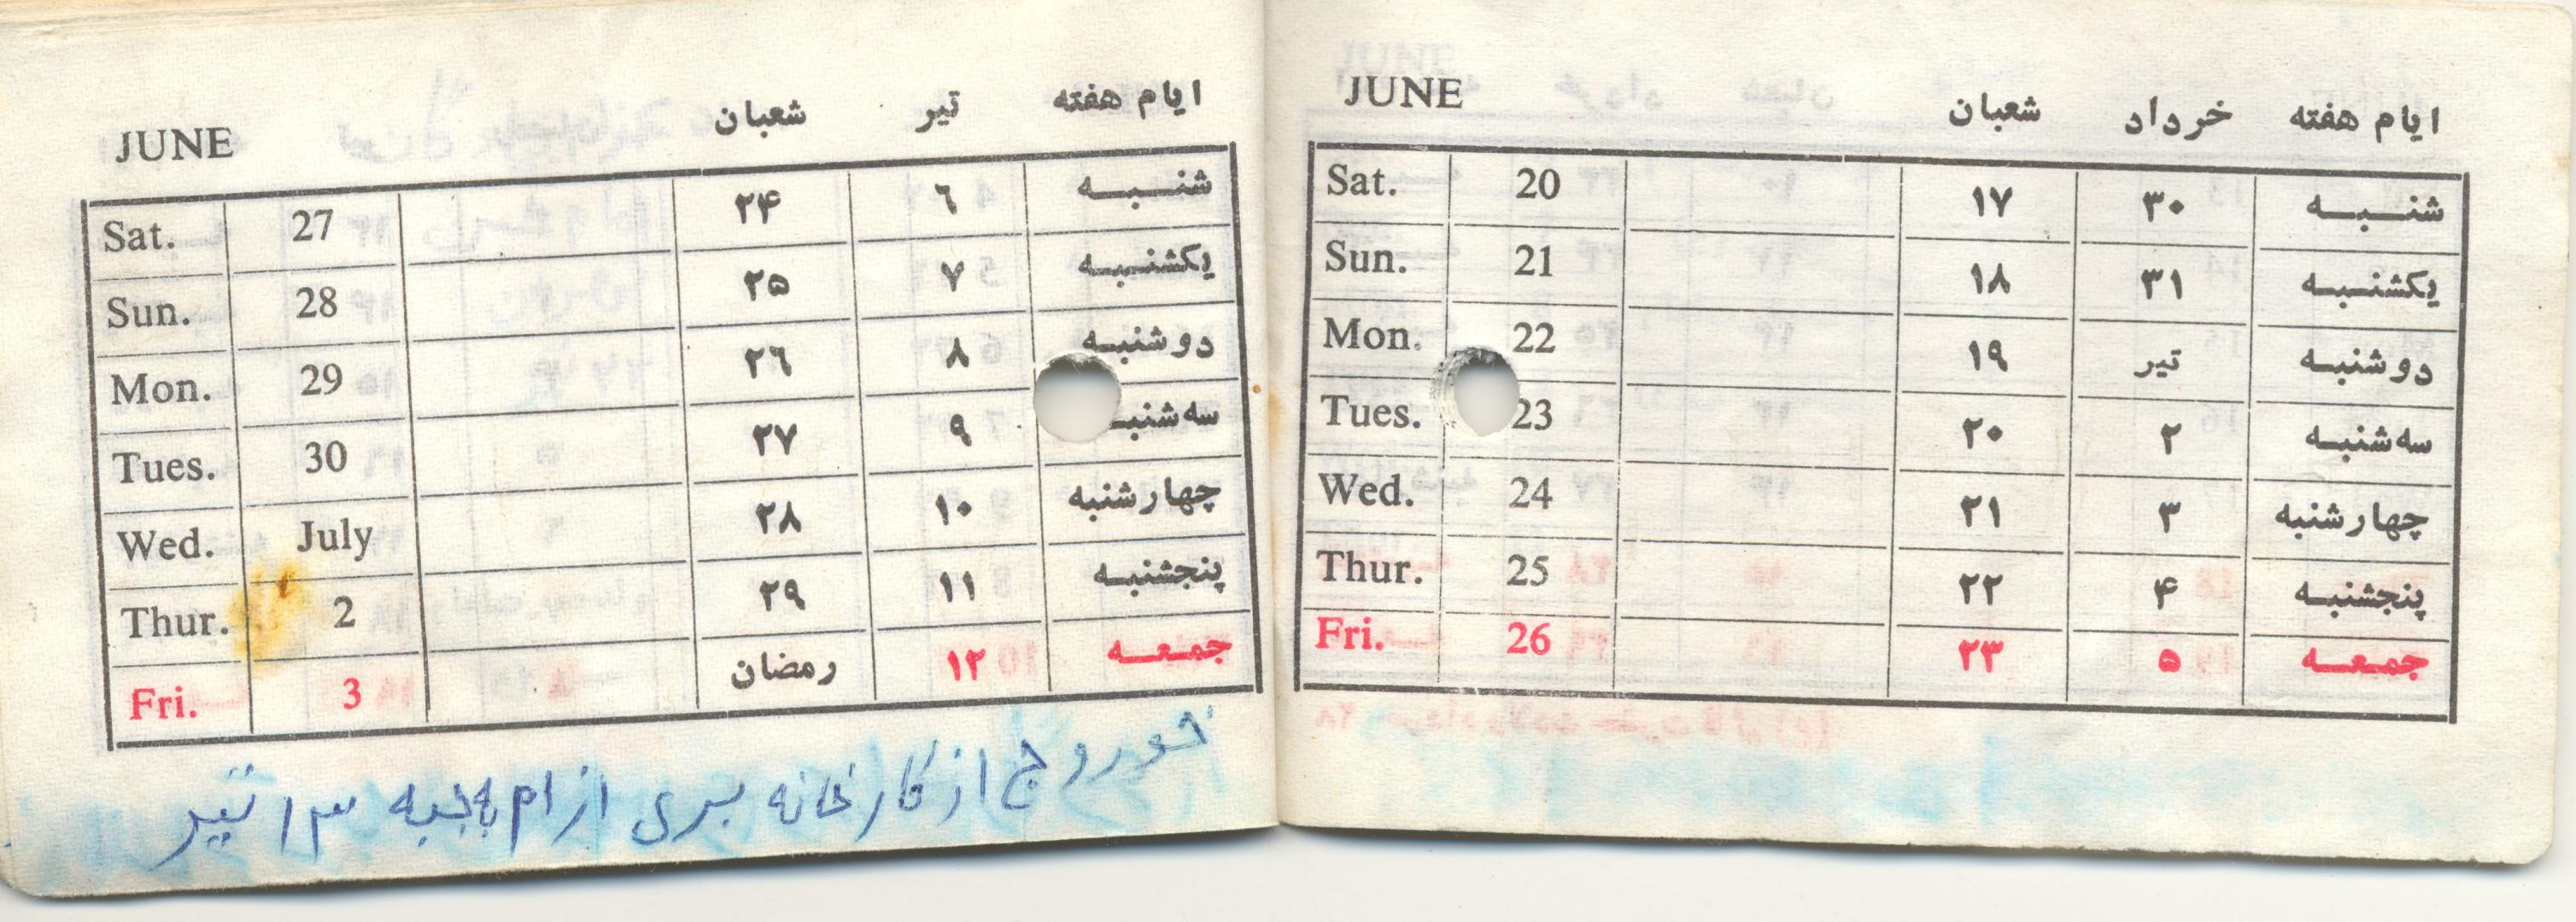 JUNE شعبان خرداد ایام هفته
Sat. 20 ۱۷ ۳۰ شنبه
Sun. 21 ۱۸ ۳۱ یکشنبه
Mon. 22 ۱۹ تیر دوشنبه
Tues. 23 ۲۰ ۲ سه شنبه
Wed. 24 ۲۱ ۳ چهارشنبه
Thur. 25 ۲۲ ۴ پنجشنبه
Fri. 26 ۲۳ ۵ جمعه
JUNE شعبان تیر ایام هفته
Sat. 27 ۲۴ ۶ شنبه
Sun. 28 ۲۵ ۷ یکشنبه
Mon. 29 ۲۶ ۸ دوشنبه
Tues. 30 ۲۷ ۹ سه شنبه
Wed. July ۲۸ ۱۰ چهارشنبه
Thur. 2 ۲۹ ۱۱ پنجشنبه
Fri. 3 رمضان ۱۲ جمعه
خوروج از کارخانه از ۱۳ تیر